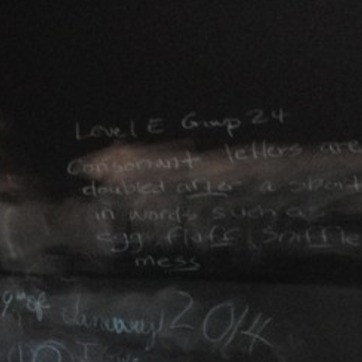 Level E Group 24
Consonant letters are
doubled after a short
in words such as
egg fluff sniffle
mess
9th of January 2014